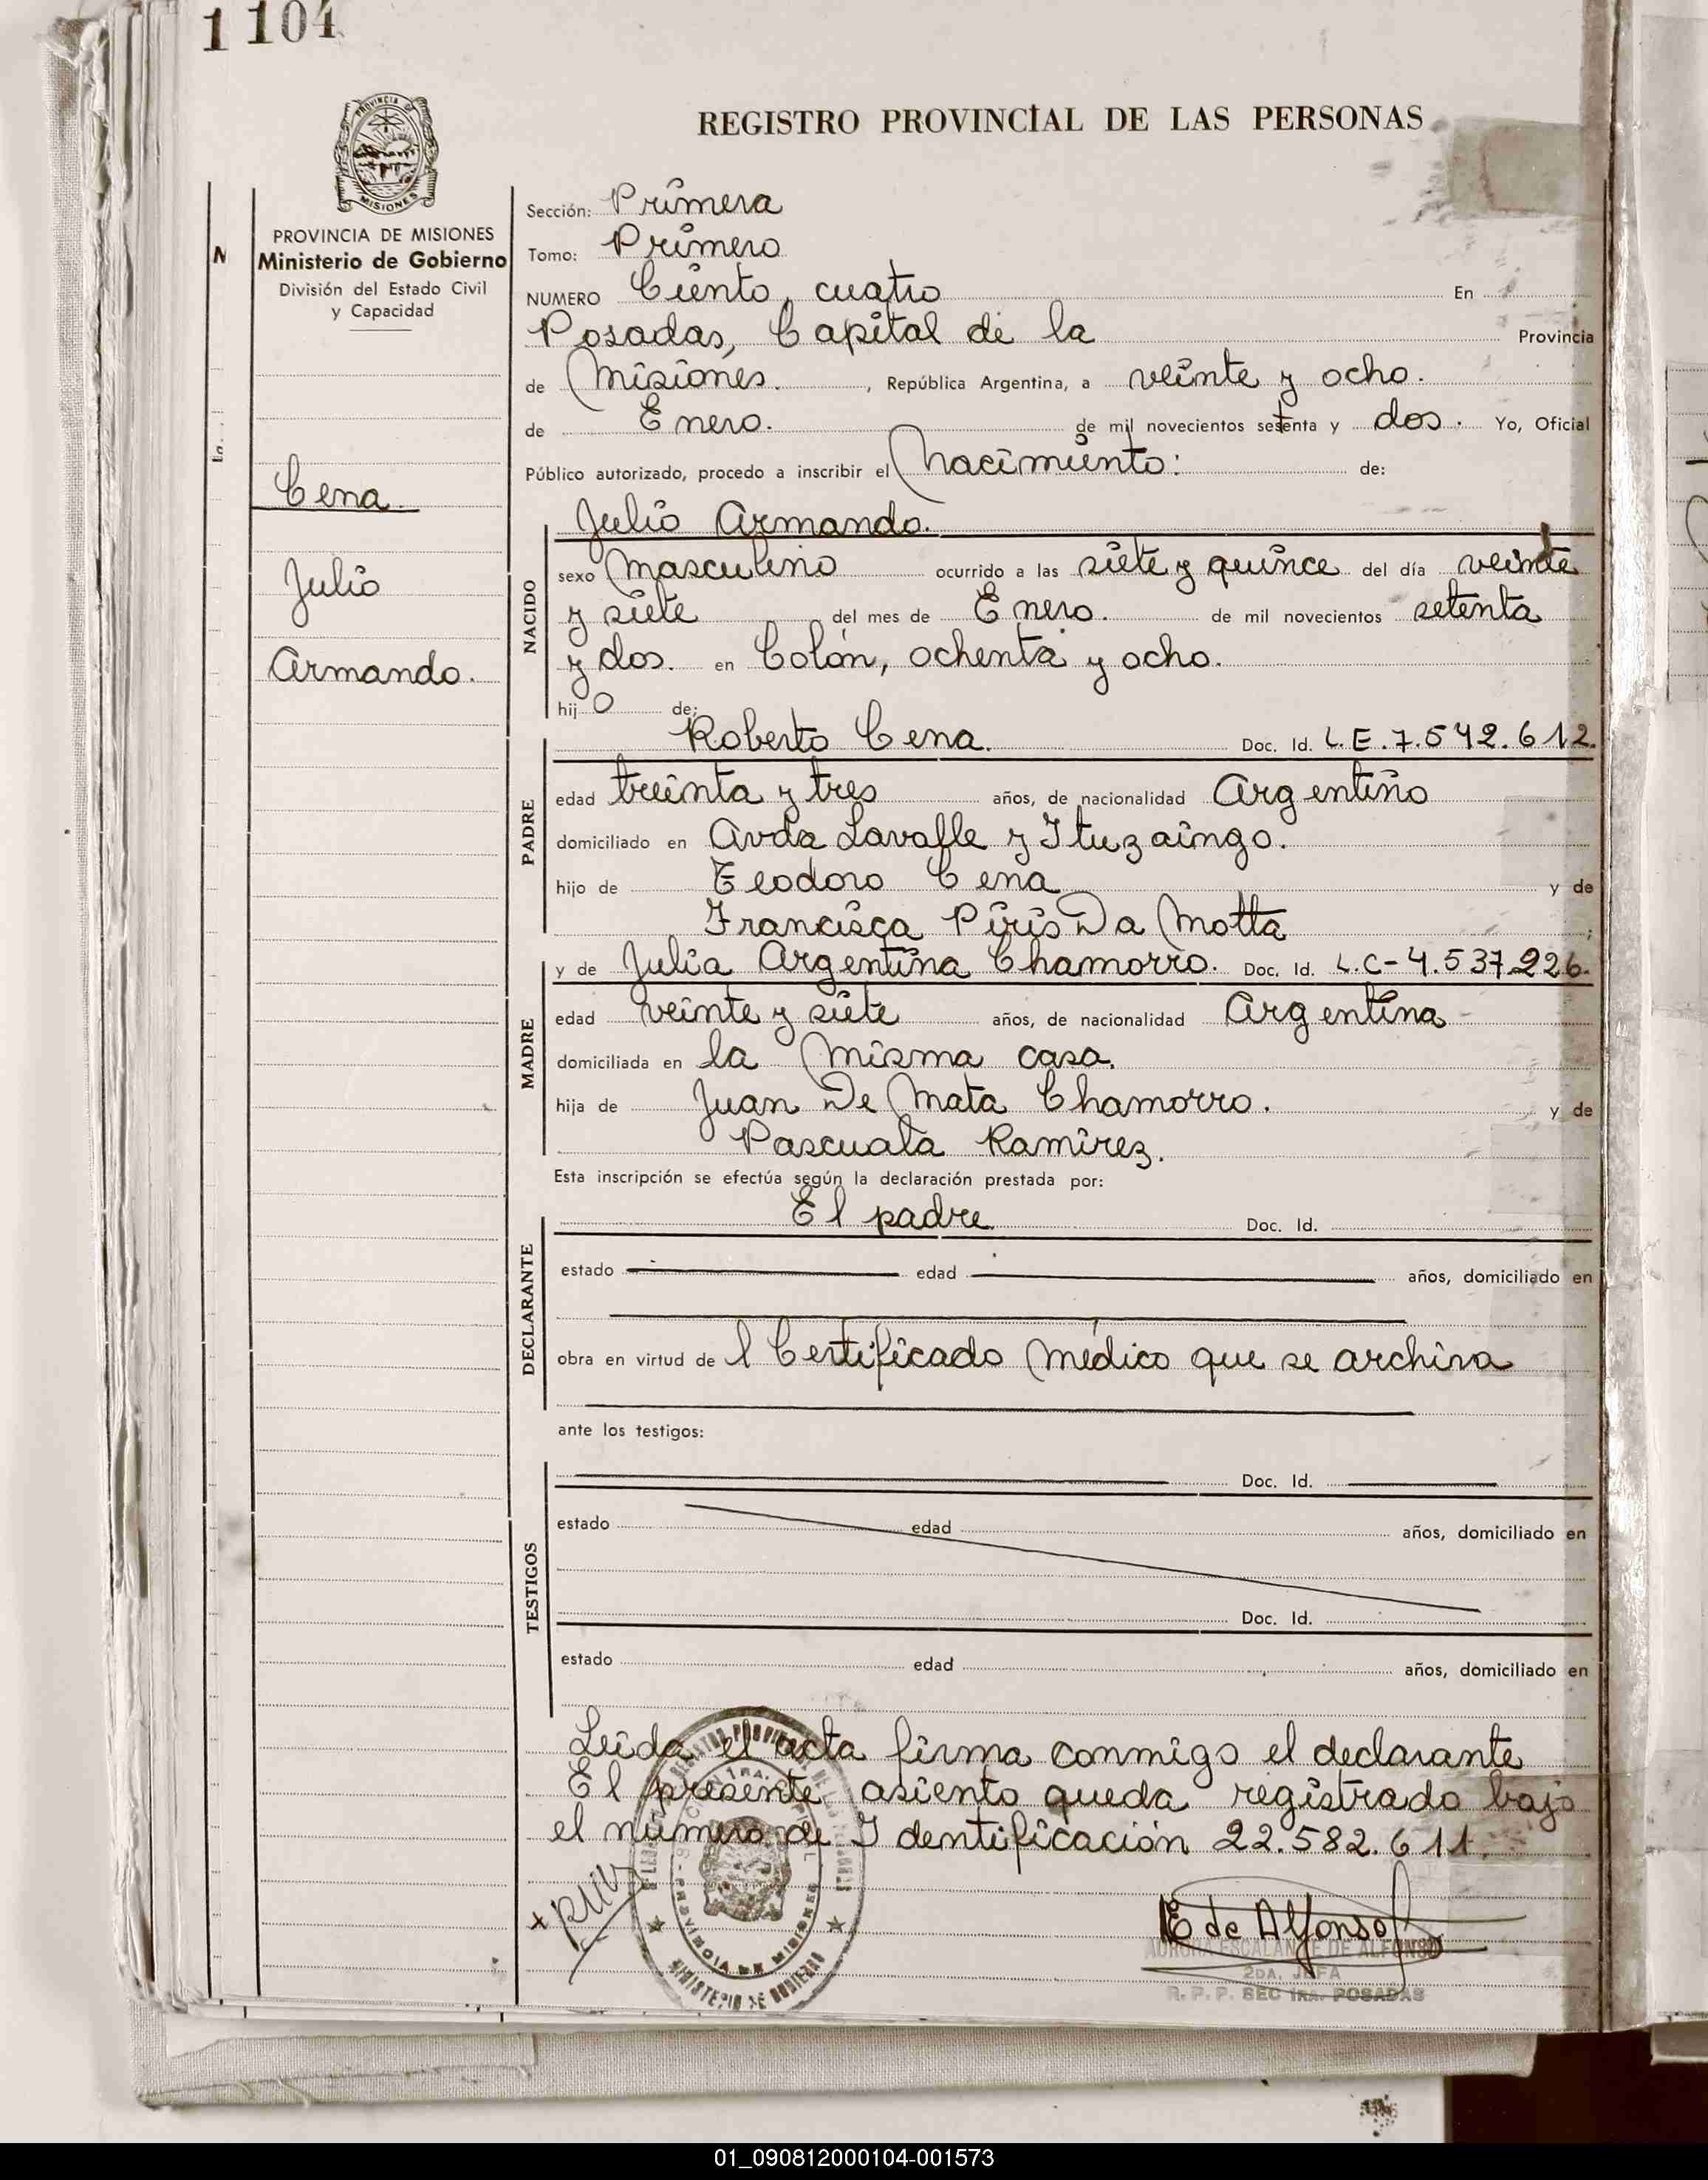 1 104
REGISTRO PROVINCIAL DE LAS PERSONAS
PROVINCIA DE MISIONES
Ministerio de Gobierno
División del Estado Civil
y Capacidad
Cena
Julio
Armando.
Sección: Primera
Tomo: Primero
NUMERO Ciento, cuatro En
Posadas, Capital de la Provincia
de Misiones. , República Argentina, a veinte y ocho.
de Enero. de mil novecientos setenta y dos. Yo, Oficial
Público autorizado, procedo a inscribir el Nacimiento: de:
Julio Armando.
NACIDO
sexo Masculino ocurrido a las siete y quince del día veinte
y siete del mes de Enero. de mil novecientos setenta
y dos. en Colón, ochenta y ocho.
hij o de:
PADRE
Roberto Cena. Doc. Id. L.E.7.542.612.
edad treinta y tres años, de nacionalidad Argentino
domiciliado en Avda Lavalle y Ituzaingo.
hijo de Teodoro Cena y de
Francisca Piris Da Motta ;
MADRE
y de Julia Argentina Chamorro. Doc. Id. L.C-4.537.226.
edad veinte y siete años, de nacionalidad Argentina
domiciliada en la misma casa.
hija de Juan De Mata Chamorro. y de
Pascuala Ramirez.
Esta inscripción se efectúa según la declaración prestada por:
DECLARANTE
El padre Doc. Id.
estado edad años, domiciliado en
obra en virtud de l Certificado Médico que se archiva
ante los testigos:
TESTIGOS
Doc. Id.
estado edad años, domiciliado en
Doc. Id.
estado edad años, domiciliado en
Leida el acta firma conmigo el declarante
El presente asiento queda registrado bajo
el número de Identificación 22.582.611.
PROVINCIA DE MISIONES
MINISTERIO DE GOBIERNO
E de Alfonso
AURORA ESCALANTE DE ALFONSO
2DA. JEFA
R. P. P. SEC 1RA. POSADAS
01_090812000104-001573